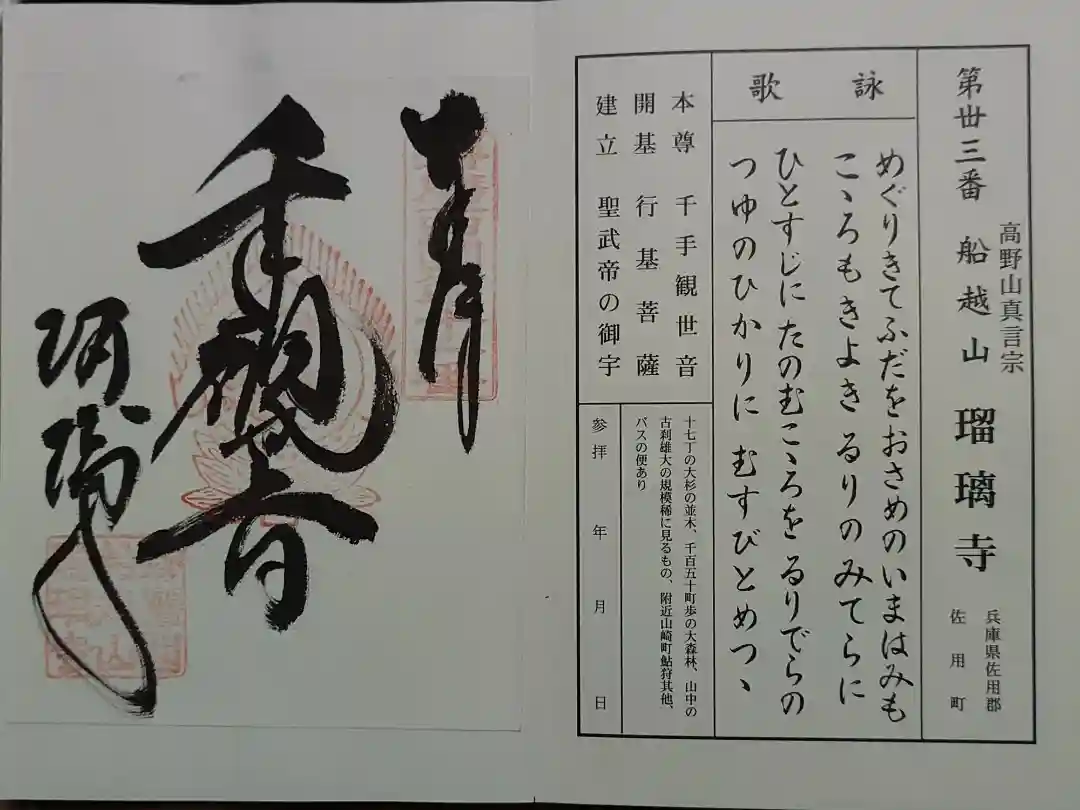 第丗三番 船越山 瑠璃寺
高野山真言宗
兵庫県佐用郡
佐用町
詠歌
めぐりきてふだをおさめのいまはみも
こゝろもきよき るりのみてらに
ひとすじにたのむこゝろをるりでらの
つゆのひかりに むすびとめつゝ
本尊 千手観世音
開基 行基菩薩
建立 聖武帝の御宇
十七丁の大杉の並木、千百五十町歩の大森林、山中の
古刹雄大の規模稀に見るもの、附近山崎町鮎狩其他、
バスの便あり
参拝 年 月 日
千手観音